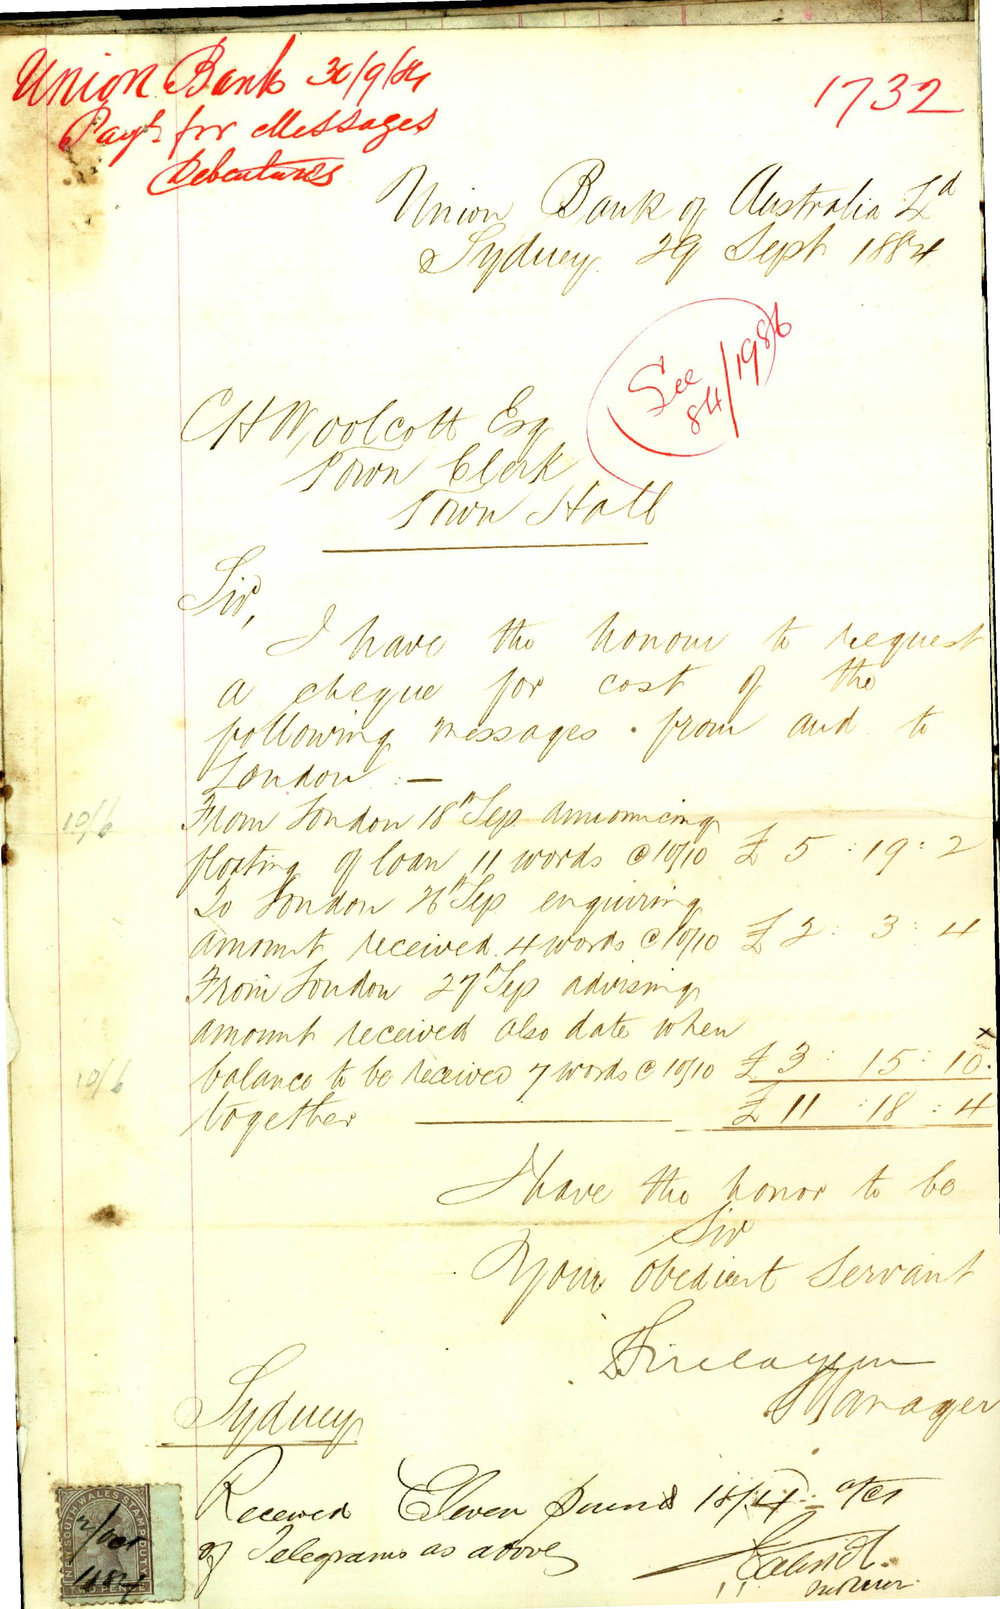 Union Bank 30/9/84
Payt for Messages
Debentures
1732
Union Bank of Australia Ld
Sydney 29 Sept 1884
See
84/1986
C H Woolcott Esq
Town Clerk
Town Hall
Sir,
I have the honour to request
a cheque for cost of the
following messages . from and to
London : —
From London 18th Sep announcing
10/6
floating of loan 11 words @ 10/10 £ 5 : 19 : 2
To London 26th Sep enquiring
amount received 4 words @ 10/10 £ 2 : 3 : 4
From London 27th Sep advising
amount received also date when
10/6
balance to be received 7 words @ 10/10 £ 3 : 15 : 10.
together £ 11 : 18 : 4
I have the honor to be
Sir
Your obedient Servant
Manager
Sydney
Received Eleven pounds 18/4
of Telegrams as above
NEW SOUTH WALES STAMP DUTY
TWO PENCE
2/Oct